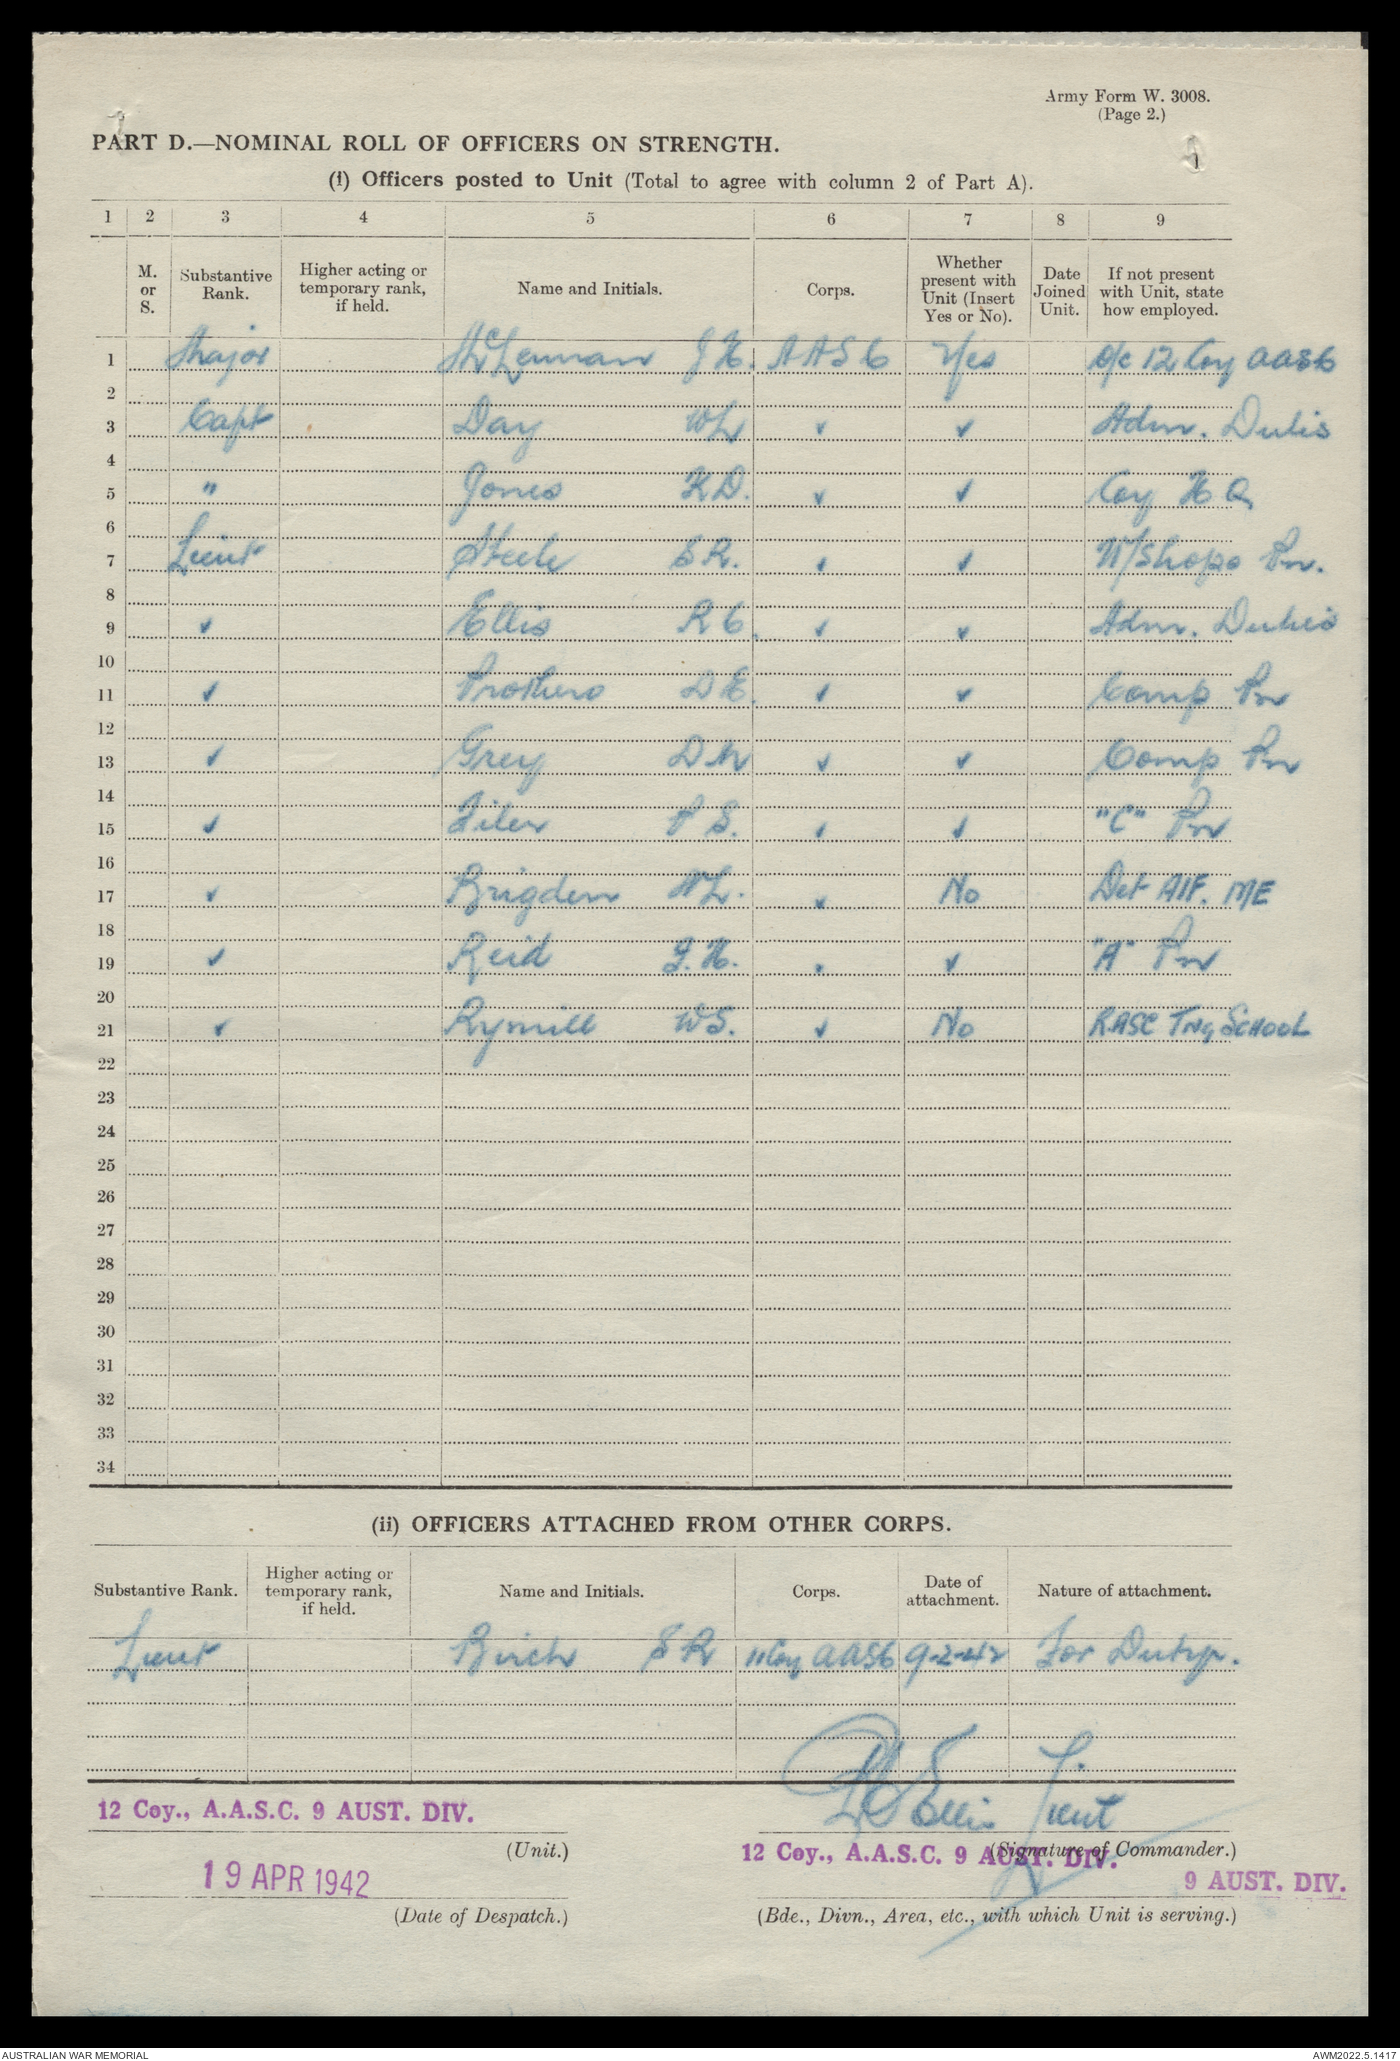 Army Form W. 3008.
(Page 2.)
PART D.—NOMINAL ROLL OF OFFICERS ON STRENGTH.
(i) Officers posted to Unit (Total to agree with column 2 of Part A).
1 2 3 4 5 6 7 8 9
M. or S. Substantive Rank. Higher acting or temporary rank, if held. Name and Initials. Corps. Whether present with Unit (Insert Yes or No). Date Joined Unit. If not present with Unit, state how employed.
1 Major McLennan J H. AASC Yes O/c 12 Coy AASC
2
3 Capt Day WL ✓ ✓ Adm. Duties
4
5 " Jones K D. ✓ ✓ Coy H Q
6
7 Lieut Steele S R. ✓ ✓ W/Shops Pn.
8
9 ✓ Ellis R C. ✓ ✓ Adm. Duties
10
11 ✓ Prothero D E. ✓ ✓ Comp Pn
12
13 ✓ Grey D N ✓ ✓ Comp Pn
14
15 ✓ Filer P S. ✓ ✓ "C" Pn
16
17 ✓ Brigden L. ✓ No Det AIF. M/E
18
19 ✓ Reid H. ✓ "A" Pn
20
21 ✓ Rymill WS. ✓ No RASC Tng SCHOOL
22
23
24
25
26
27
28
29
30
31
32
33
34
(ii) OFFICERS ATTACHED FROM OTHER CORPS.
Substantive Rank. Higher acting or temporary rank, if held. Name and Initials. Corps. Date of attachment. Nature of attachment.
Lieut Birch S R 11 Coy AASC 9-2-42 For Duty.
12 Coy., A.A.S.C. 9 AUST. DIV. RC Ellis Lieut
(Unit.) (Signature of Commander.)
12 Coy., A.A.S.C. 9 AUST. DIV.
19 APR 1942 9 AUST. DIV.
(Date of Despatch.) (Bde., Divn., Area, etc., with which Unit is serving.)
AUSTRALIAN WAR MEMORIAL AWM2022.5.1417